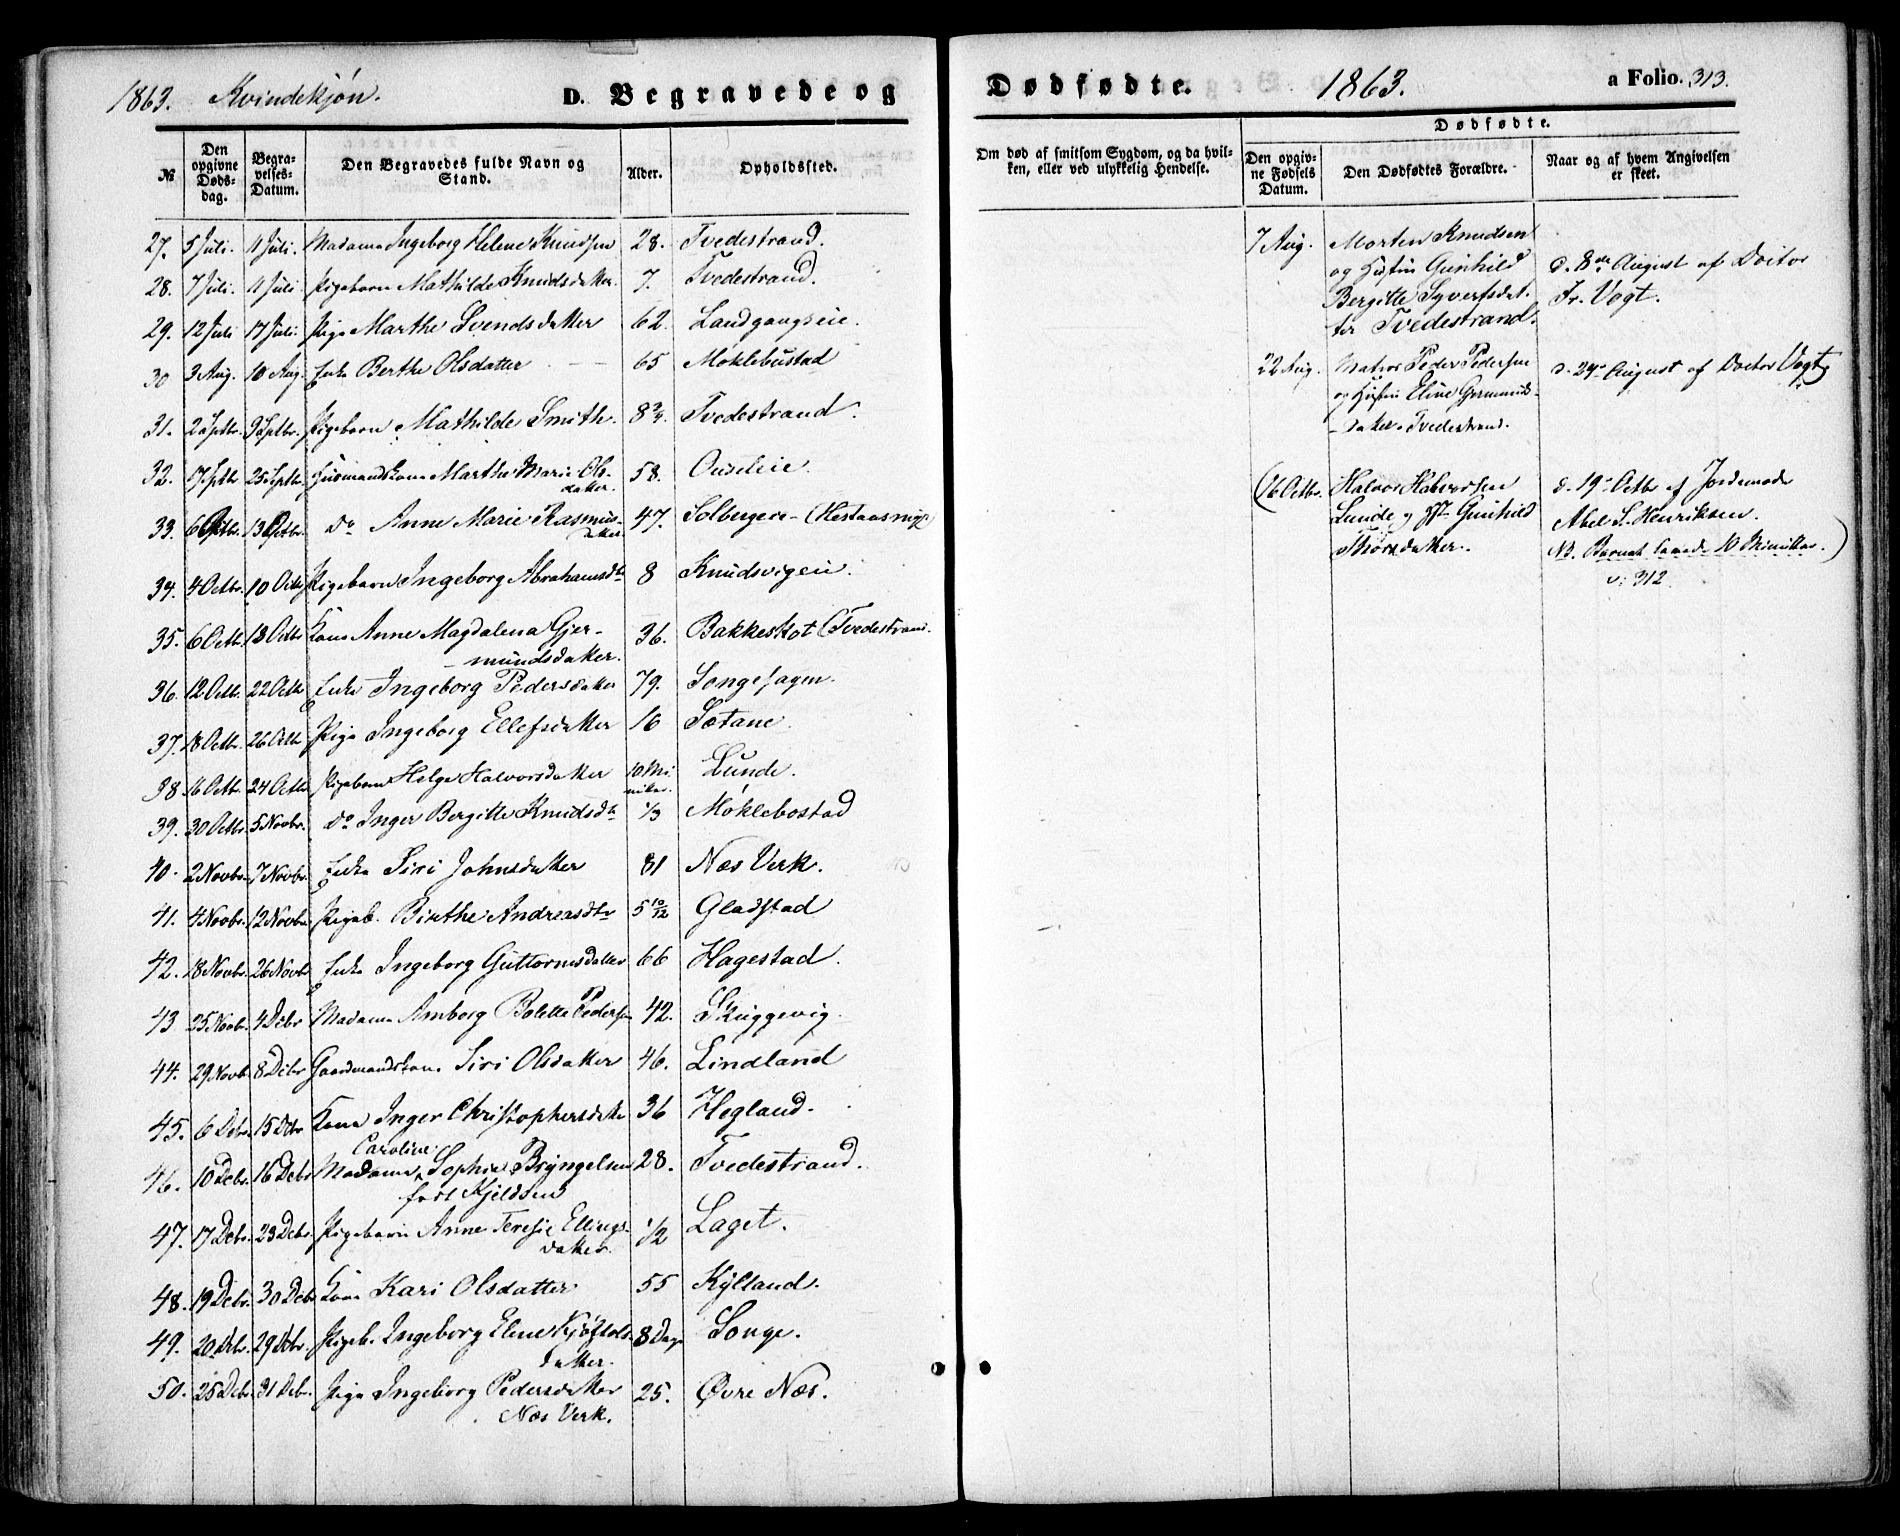 1863. Kvindekjøn. D. Begravede og
№ Den opgivne Døds-dag. Begra-velses-Datum. Den Begravedes fulde Navn og Stand. Alder. Opholdssted.
27. 5 Juli. 11 Juli. Madame Ingeborg Helene Knudsen 28. Tvedestrand.
28. 7 Juli. 11 Juli Pigebarn Mathilde Knudsdatter. 7. Tvedestrand.
29. 12 Juli 17 Juli. Pige Marthe Svendsdatter 62. Landgangseie.
30 3 Aug. 10 Aug. Enke Berthe Olsdatter 65 Moklebustad
31. 2 Septbr. 9 Septbr. Pigebarn Mathilde Smith. 8 3/4. Tvedestrand.
32. 17 Septbr 25 Septbr. Huusmandskone Marthe Marie Ols-
datter. 58.
33. 6 Octbr. 13 Octbr. do Anne Marie Rasmus-
datter 47. Solbergeie
34. 4 Octbr. 10 Octb Pigebarn Ingeborg Abrahamsdtr 8 Knudsvigeie.
35. 6 Octb. 12 Octbr Kone Anne Magdalena Gjer-
mundsdatter. 36. Bakkeskot (Tvedestrand.
36. 12 Octb. 22 Octb Enke Ingeborg Pedersdatter 79. Songehagen.
37. 18 Octbr. 26 Octb Pige Ingeborg Ellefsdatter 16 Sætane.
38 16 Octb. 24 Octb Pigebarn Helge Halvorsdatter 10 Mi-
nuter. Lunde.
39. 30 Octbr. 5 Novbr. do Inger Bergitte Knudsdtr 1/3 Moklebostad
40. 2 Novbr. 7 Novbr. Enke Siri Johnsdatter 81 Næs Verk.
41. 4 Novbr. 12 Novbr. Pigeb. Birthe Andreasdtr 5 10/12 Gladstad
42. 18 Novbr. 26 Novbr Enke Ingeborg Guttormsdatter 66 Hagestad.
43 25 Novbr. 4 Decbr Madame Amborg Bolette Pedersen 42. Skuggevig.
44. 29 Novb. 8 Debr Gaardmandskone Siri Olsdatter 46. Lindland
45. 6 Debr. 15 Debr Kone Inger Christophersdatter 36 Hegland.
Caroline
46. 10 Debr. 16 Debr Madame Sophie Bryngelsen 28. Tvedestrand.
født Kjeldsen
47. 17 Debr. 23 Debr. Pigebarn Anne Teresie Ellings-
datter. 1/2 Laget.
48. 19 Debr. 30 Debr Kone Kari Olsdatter 55 Kylland.
49. 20 Debr. 29 Debr. Pigeb. Ingeborg Eline
datter. 8 Dage Songe.
50. 25 Debr 31 Debr. Pige Ingeborg Pedersdatter 25. Øvre Næs.
Næs Verk.
Dødfødte. 1863. a Folio. 313.
Om død af smitsom Sygdom, og da hvil-ken, eller ved ulykkelig Hendelse. Dødfødte.
Den opgiv-ne Fødsels Datum. Den Dødfødtes Forældre. Naar og af hvem Angivelsen er skeet.
7 Aug. Morten Knudsen
og Hustru Gunhild d. 8de August af Doctor
Bergitte Syvertsdat- Fr. Vogt.
ter Tvedestrand.
22 Aug. Matros Peder Pedersen d. 24de August af Doctor Vogt
og Hustru Eline Germunds-
datter. Tvedestrand.
(16 Octbr. Halvor Halvorsen d. 19de Octbr af Jordemoder
Lunde og Gunhild Abel S. Henriksen.
Thorsdatter. NB. Barnet levede 10 Minutter.)
v: 312.